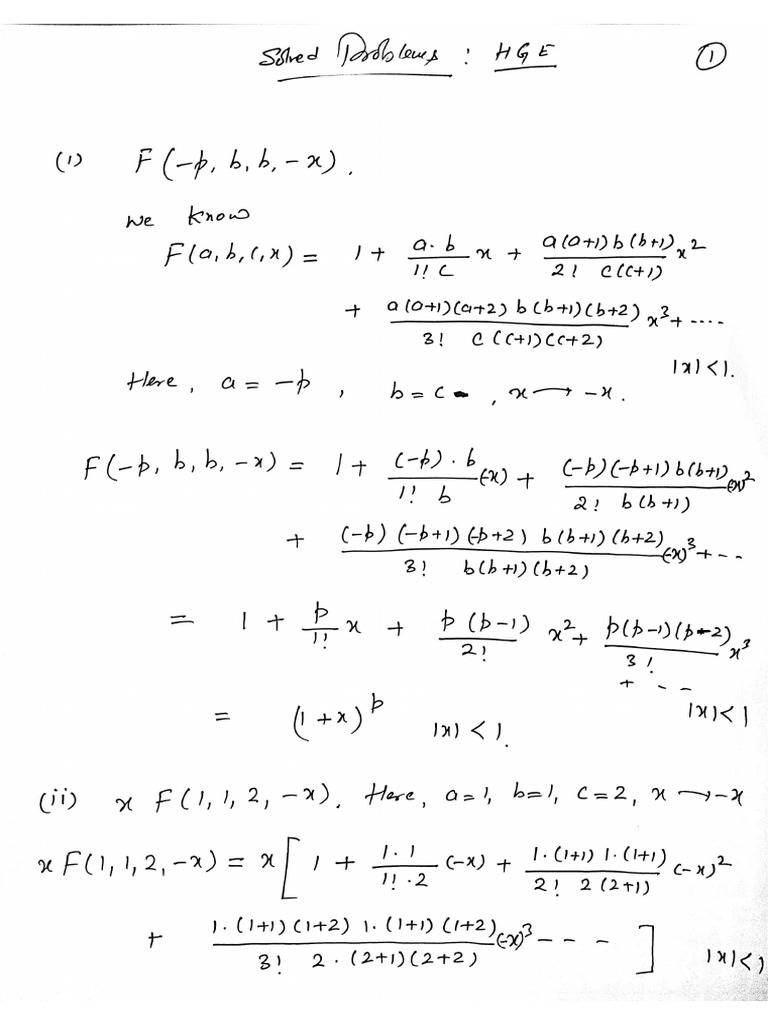 Solved Problems : HGE ①
(i) F(-p, b, b, -x).
we know
F(a, b, c, x) = 1 + \frac{a.b}{1! c} x + \frac{a(a+1) b(b+1)}{2! c(c+1)} x^2
+ \frac{a(a+1)(a+2) b(b+1)(b+2)}{3! c(c+1)(c+2)} x^3 + ....
|x| < 1.
Here, a = -p, b = c, x → -x.
F(-p, b, b, -x) = 1 + \frac{(-p) . b}{1! b} (-x) + \frac{(-p)(-p+1) b(b+1)}{2! b(b+1)} (-x)^2
+ \frac{(-p)(-p+1)(-p+2) b(b+1)(b+2)}{3! b(b+1)(b+2)} (-x)^3 + --
= 1 + \frac{p}{1!} x + \frac{p(p-1)}{2!} x^2 + \frac{p(p-1)(p-2)}{3!} x^3
+ - --
= (1+x)^p |x| < 1. |x| < 1
(ii) x F(1, 1, 2, -x). Here, a=1, b=1, c=2, x → -x
x F(1, 1, 2, -x) = x [ 1 + \frac{1.1}{1!.2} (-x) + \frac{1.(1+1) 1.(1+1)}{2! 2(2+1)} (-x)^2
+ \frac{1.(1+1)(1+2) 1.(1+1)(1+2)}{3! 2.(2+1)(2+2)} (-x)^3 - - - - ] |x| < 1